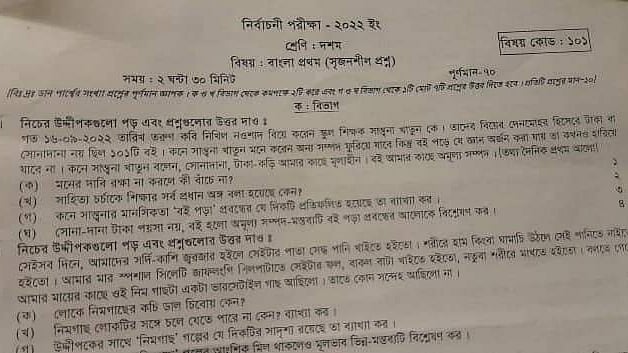 নির্বাচনী পরীক্ষা - ২০২২ ইং
শ্রেণি : দশম
বিষয় কোড : ১০১
বিষয় : বাংলা প্রথম (সৃজনশীল প্রশ্ন)
সময় : ২ ঘন্টা ৩০ মিনিট
পূর্ণমান-৭০
[বিঃ দ্রঃ ডান পার্শ্বের সংখ্যা প্রশ্নের পূর্ণমান জ্ঞাপক । ক ও খ বিভাগ থেকে কমপক্ষে ২টি করে এবং গ ও ঘ বিভাগ থেকে ১টি মোট ৭টি প্রশ্নের উত্তর দিতে হবে । প্রতিটি প্রশ্নের মান-১০]
ক : বিভাগ
নিচের উদ্দীপকগুলো পড় এবং প্রশ্নগুলোর উত্তর দাও ঃ
গত ১৬-০৯-২০২২ তারিখ তরুণ কবি নিখিল নওশাদ বিয়ে করেন স্কুল শিক্ষক সান্ত্বনা খাতুন কে । তাদের বিয়ের দেনমোহর হিসেবে টাকা বা
সোনাদানা নয় ছিল ১০১টি বই । কনে সান্ত্বনা খাতুন মনে করেন অন্য সম্পদ ফুরিয়ে যাবে কিন্তু বই পড়ে যে জ্ঞান অর্জন করা যায় তা কখনও হারিয়ে
যাবে না । কনে সান্ত্বনা খাতুন বলেন, সোনাদানা, টাকা-কড়ি আমার কাছে মূল্যহীন । বই আমার কাছে অমূল্য সম্পদ । (তথ্য দৈনিক প্রথম আলো)
(ক) মনের দাবি রক্ষা না করলে কী বাঁচে না? ১
(খ) সাহিত্য চর্চাকে শিক্ষার সর্ব প্রধান অঙ্গ বলা হয়েছে কেন? ২
(গ) কনে সান্ত্বনার মানসিকতা 'বই পড়া' প্রবন্ধের যে দিকটি প্রতিফলিত হয়েছে তা ব্যাখ্যা কর । ৩
(ঘ) সোনা-দানা টাকা পয়সা নয়, বই হলো অমূল্য সম্পদ-মন্তব্যটি বই পড়া প্রবন্ধের আলোকে বিশ্লেষণ কর । ৪
নিচের উদ্দীপকগুলো পড় এবং প্রশ্নগুলোর উত্তর দাও ঃ
সেইসব দিনে, আমাদের সর্দি-কাশি জ্বরজার হইলে সেইটার পাতা সেদ্ধ পানি খাইতে হইতো । শরীরে হাম কিংবা ঘামাচি উঠলে সেই পানিতে নাইতে
হইতো । আমার মার স্পেশাল সিলেটি জাফলংগি শিলপাটাতে সেইটার ফল, বাকল বাটা খাইতে হইতো, নতুবা শরীরে মাখতে হইতো । বলতে গেলে
আমার মায়ের কাছে ওই নিম গাছটা একটা ভারসেটাইল গাছ আছিলো । তাতে কোন সন্দেহ আছিলো না ।
(ক) লোকে নিমগাছের কচি ডাল চিবোয় কেন?
(খ) নিমগাছ লোকটির সঙ্গে চলে যেতে পারে না কেন? ব্যাখ্যা কর ।
(গ) উদ্দীপকের সাথে 'নিমগাছ' গল্পের যে দিকটির সাদৃশ্য রয়েছে তা ব্যাখ্যা কর ।
গল্পের আংশিক মিল থাকলেও মূলভাব ভিন্ন-মন্তব্যটি বিশ্লেষণ কর ।